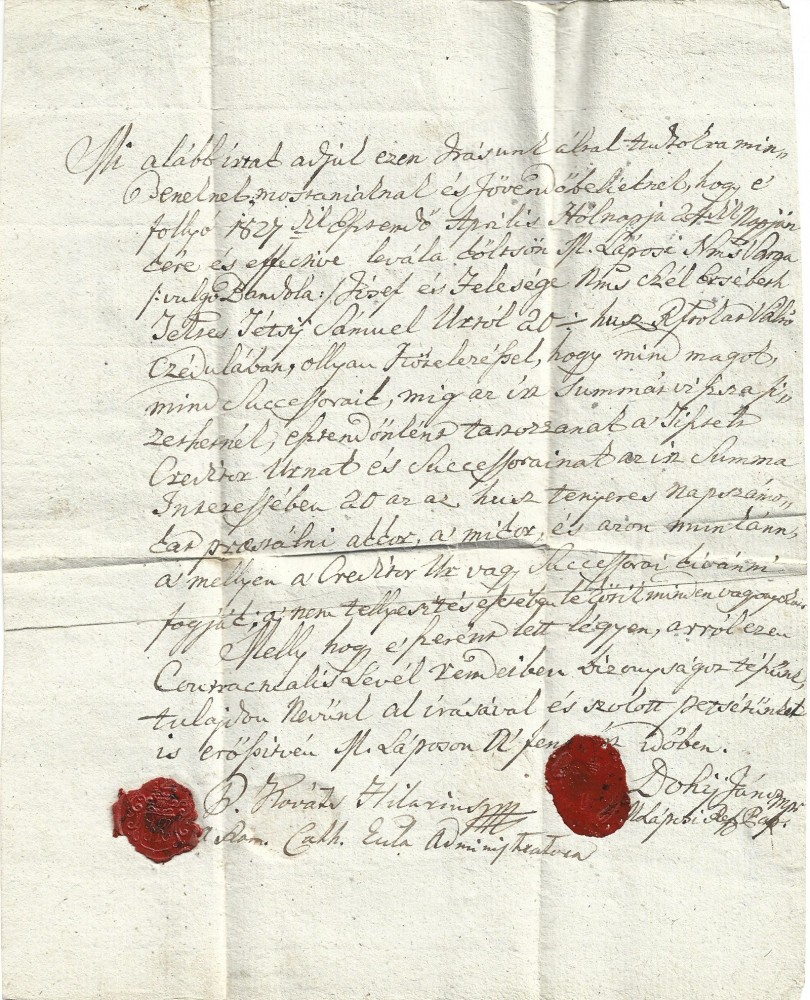 Mi alább írtak adjuk ezen Irásunk által tudtokra min„
deneknek, mostaniaknak és Jövendőbelieknek, hogy e
follyó 1827dik Esztendő Április Hólnapja 24dik Napján
kére és effective levála költsön M. Láposi Nms Varga
/: vulgo Bandola :/ Jósef és Felesége Nms Czél Ersébeth
Tekts Tétsij Sámuel Urtól 20 :/: husz Rftokat Váltó
Czédulában, ollyan Kötelezéssel, hogy mind magok,
mind Successoraik, mig az irt Summát viszsza fi„
zethetnék, esztendőnként tartozzanak a Tisztelt
Creditor Urnak és Successorainak az irt Summa
Interessében 20 az az husz tenyeres napszámo„
kat præstálni akkor, a mikor, és azon munkánn,
a mellyen a Creditor Ur vagy Successorai kivánni
fogják; a nem tellyesités esetiben le kötik minden vagyonjokat.
Melly hogy e szerént lett légyen, arról ezen
Contractualis Levél rendeiben bizonyságot tészünk,
tulajdon Nevünk al irásával és szokott petsétünket
is erőssitvén M. Láposon U' fent irt időben.
P. Kováts Hilarius mp
Rom. Cath. Eccla Administratora
Dohij János mpr
M Láposi Ref. Pap.